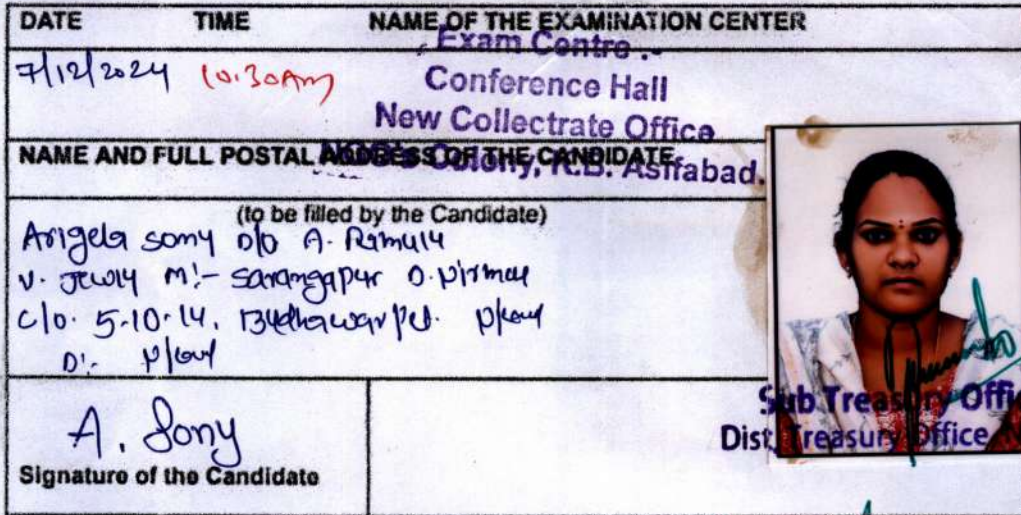 DATE TIME NAME OF THE EXAMINATION CENTER
Exam Centre :-
7/12/2024 10.30Am
Conference Hall
New Collectrate Office
Colony, K.B. Asifabad.
NAME AND FULL POSTAL ADDRESS OF THE CANDIDATE
(to be filled by the Candidate)
Arigela sony D/o A.
V. M:- Sarangapur D.
C/o. 5-10-14,
D:-
A. Sony
Signature of the Candidate
Sub Treasury Offi
Dist. Treasury Office